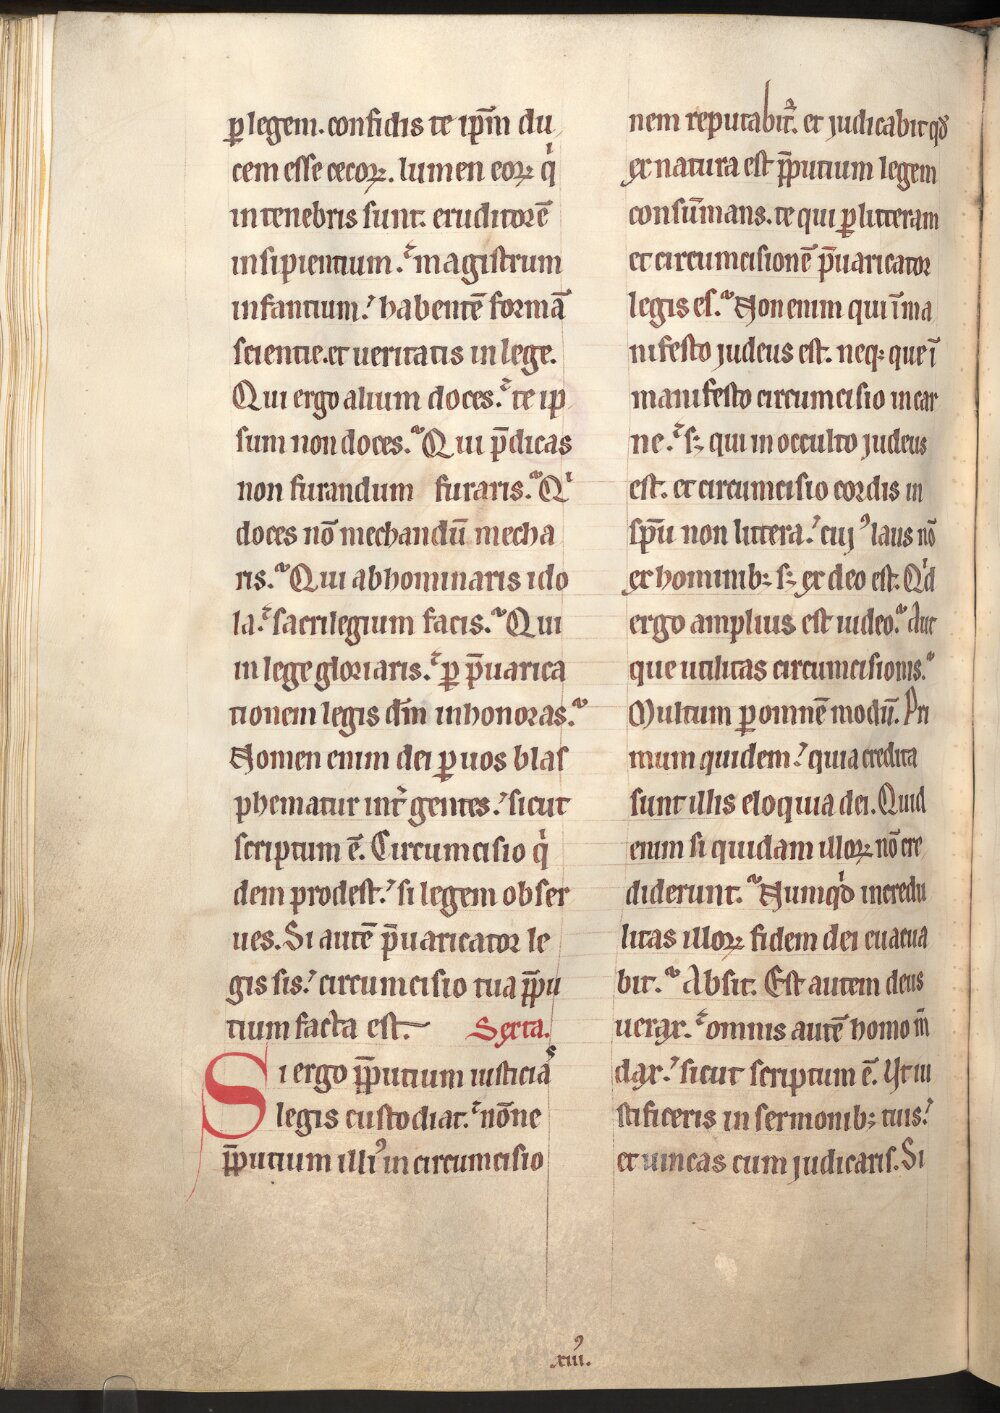 ꝑ legem. confidis te ip̅m du
cem esse cecoꝝ. lumen eoꝝ qͥ
in tenebris sunt. eruditorē
insipientium. magistrum
infantium. habentē formā
scientie. et ueritatis in lege.
Qui ergo alium doces. te ip
sum non doces. Qui p̅dicas
non furandum furaris. Qͥ
doces nō mechandū mecha
ris. Qui abhominaris ido
la. sacrilegium facis. Qui
in lege gloriaris. ꝑ p̅uarica
tionem legis dm̅ inhonoras.
Nomen enim dei ꝑ uos blas
phematur int̾ gentes. sicut
scriptum ē. Circumcisio qͥ
dem prodest. si legem obser
ues. Si autē p̅uaricator le
gis sis. circumcisio tua p̅pu
tium facta est. Sexta.
Si ergo p̅putium iusticiaˢ
legis custodiat. nōne
p̅putium illiꝰ in circumcisio
nem reputabit᷑. et judicabit qd̅
ex natura est p̅putium legem
consūmans. te qui ꝑ litteram
et circumcisionē p̅uaricator
legis es. Non enim qui ī ma
nifesto judeus est. neqꝫ que ī
manifesto circumcisio in car
ne. sꝫ qui in occulto judeus
est. et circumcisio cordis in
sp̅u non littera. cujꝰ laus nō
ex hominibꝫ sꝫ ex deo est. Qͥd
ergo amplius est iudeo. Aut
que utilitas circumcisionis.
Multum ꝑ omnē modū. Pri
mum quidem. quia credita
sunt illis eloquia dei. Quid
enim si quidam illoꝝ nō cre
diderunt. Numqͥd incredu
litas illoꝝ fidem dei euacua
bit. Absit. Est autem deus
uerax. omnis autē homo m̅
dax. sicut scriptum ē. Ut iu
stificeris in sermonibꝫ tuis.
et uincas cum judicaris. Si
xiiiꝰ.